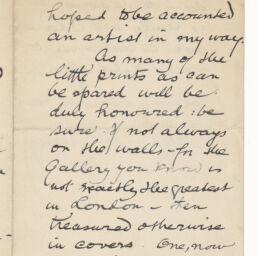 hoped to be accounted
an artist in my way.
As many of the
little prints as can
be spared will be
duly honoured: be
sure. If not always
on the walls - for the
Gallery you know is
not exactly the greatest
in London - then
treasured otherwise
in covers. One, now